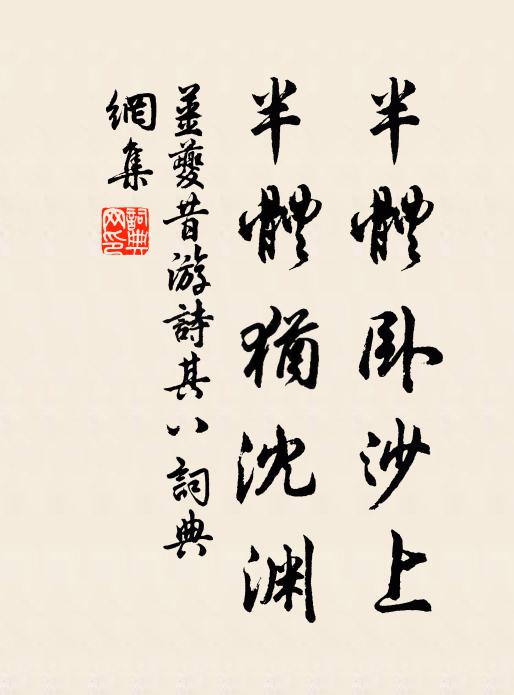 半體臥沙上
半體猶沈淵
姜夔昔游詩其八詞典
網集
詞典網印